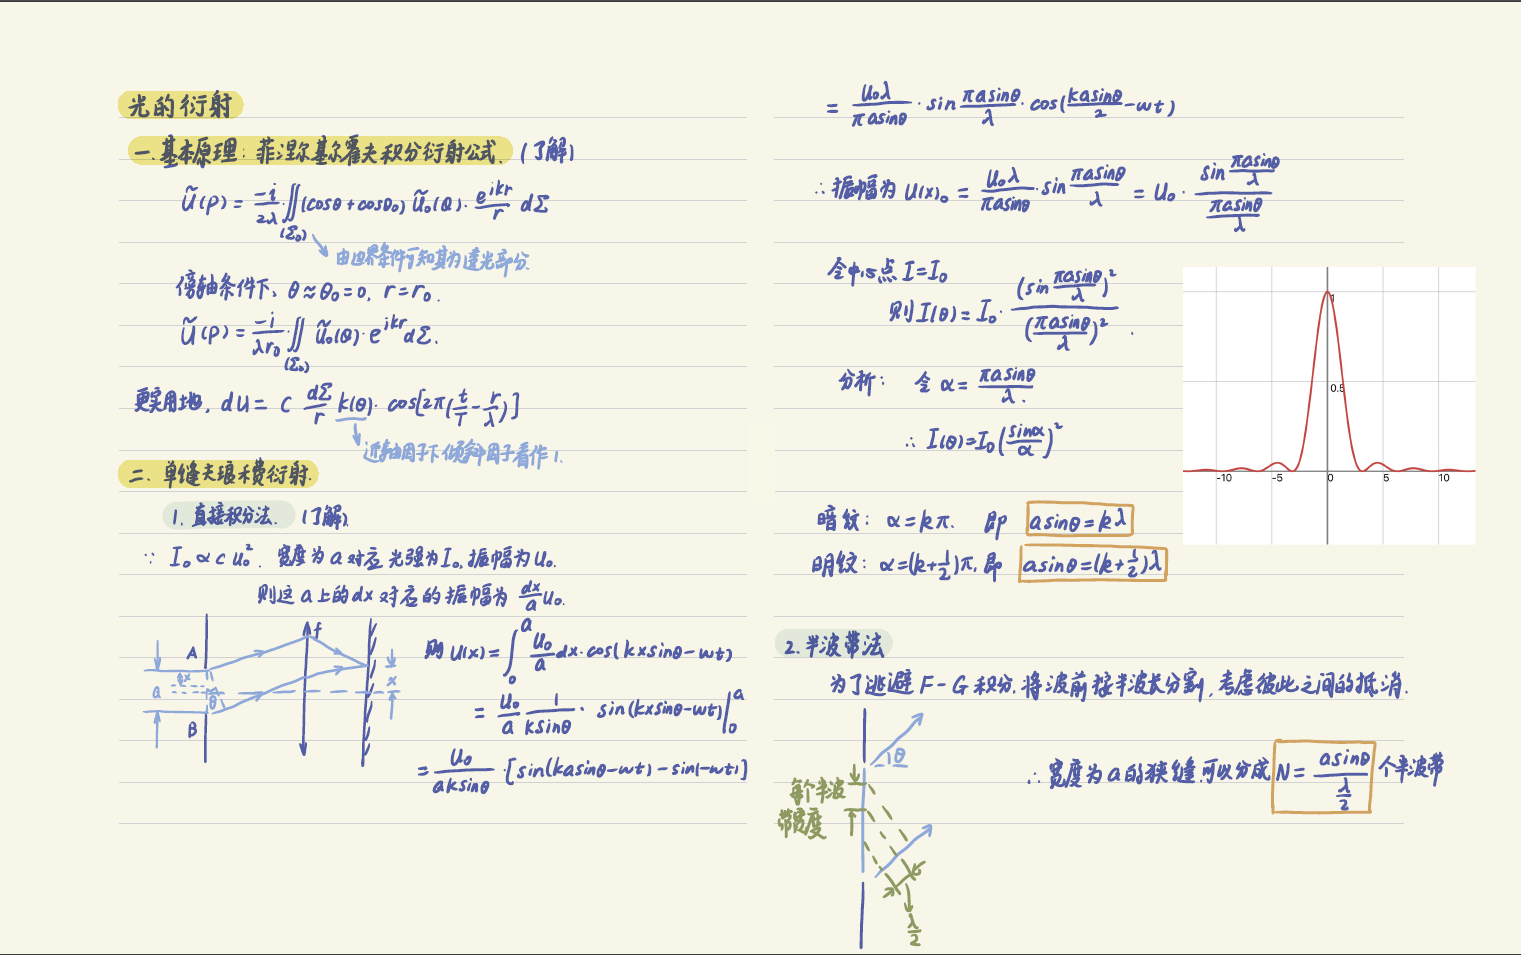 光的衍射
一.基本原理：菲涅尔基尔霍夫积分衍射公式.（了解）
Ũ(P) = \frac{-i}{2λ} ∬_{(Σ₀)} (cosθ+cosθ₀) Ũ₀(Q)· \frac{e^{ikr}}{r} dΣ
由边界条件可知其为透光部分.
傍轴条件下、θ≈θ₀=0, r=r₀.
Ũ(P) = \frac{-i}{λr₀} ∬_{(Σ₀)} Ũ₀(Q)·e^{ikr}dΣ.
更实用地, dU = C \frac{dΣ}{r} k(θ)· cos[2π(\frac{t}{T}-\frac{r}{λ})]
近轴因子下倾斜因子看作1.
二. 单缝夫琅禾费衍射.
1. 直接积分法. （了解）.
∵ I₀ ∝ c u₀². 宽度为a对应光强为I₀,振幅为U₀.
则这a上的dx对应的振幅为 \frac{dx}{a}U₀.
A
dx
a
θ
B
f
x
则 U(x) = ∫_0^a \frac{U₀}{a}dx·cos(kxsinθ-wt)
= \frac{U₀}{a} \frac{1}{ksinθ} · sin(kxsinθ-wt)|_0^a
= \frac{U₀}{aksinθ} ·[sin(kasinθ-wt)-sin(-wt)]
= \frac{U₀λ}{πasinθ} · sin\frac{πasinθ}{λ} · cos(\frac{kasinθ}{2}-wt)
∴振幅为 U(x)₀ = \frac{U₀λ}{πasinθ} ·sin\frac{πasinθ}{λ} = U₀ · \frac{sin\frac{πasinθ}{λ}}{\frac{πasinθ}{λ}}
令中心点 I=I₀
则I(θ)=I₀· \frac{(sin\frac{πasinθ}{λ})²}{(\frac{πasinθ}{λ})²} .
分析： 令 α= \frac{πasinθ}{λ}.
∴ I(θ)=I₀(\frac{sinα}{α})²
1
0.5
-10 -5 0 5 10
暗纹： α=kπ. 即 asinθ=kλ
明纹： α=(k+\frac{1}{2})π,即 asinθ=(k+\frac{1}{2})λ
2.半波带法
为了逃避F-G积分.将波前按半波长分割,考虑彼此之间的抵消.
θ
每个半波
带宽度
\frac{λ}{2}
∴宽度为a的狭缝.可以分成 N= \frac{asinθ}{\frac{λ}{2}} 个半波带